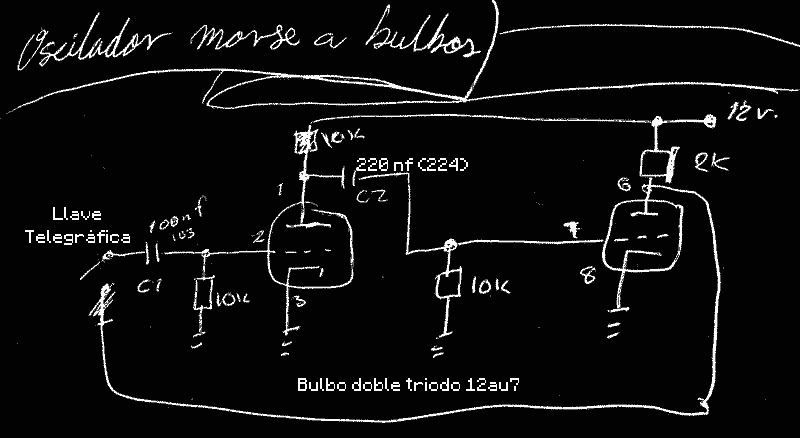 Oscilador morse a bulbos
12v.
10K
220 nf (224)
C2
2K
1
6
Llave
Telegráfica
100nf
103
2
7
8
C1
10K
3
10K
Bulbo doble triodo 12au7